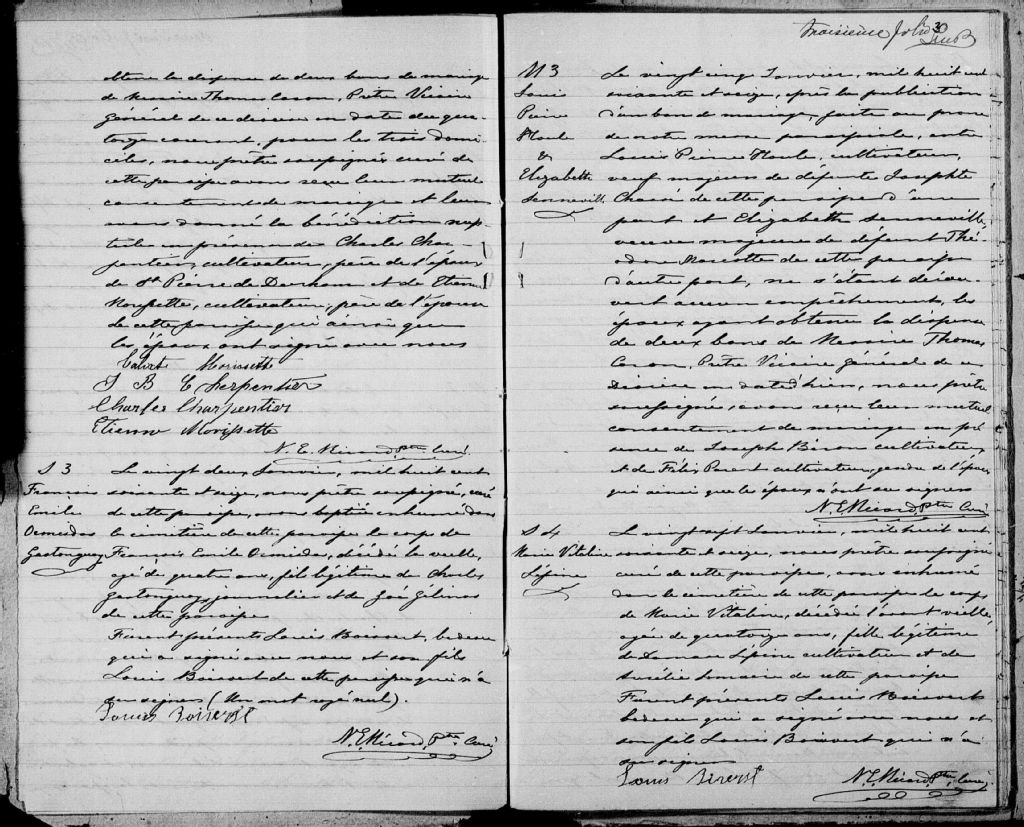 obtenu la dispense de deux bans de mariage
de Messire Thomas Caron, Prêtre Vicaire
Général de ce diocese en date du qua-
torze courant, pour les trois domi-
ciles, nous prêtre soussigné curé de
cette paroisse avons reçu leur mutuel
consentement de mariage et leur
avons donné la bénédiction nup-
tiale en présence de Charles Char-
pentier, cultivateur, père de l'époux
de St Pierre de Durham et de Etienne
Morissette, cultivateur, père de l'épouse
de cette paroisse qui ainsi que
les époux ont signé avec nous
Morissette
J B C Sharpentier
Charles Charpentier
Etienne Morissette
N. E. Ricard, Ptre Curé
S 3
François
Emile
Ormidas
Gastonguay
Le vingt deux Janvier, mil huit cent
soixante et seize, nous prêtre soussigné, curé
de cette paroisse, avons baptisé enhumé dans
le cimetière de cette paroisse le corps de
François Emile Ormidas, décédé la veille,
agé de quatre ans, fils légitime de Charles
Gastonguay, journalier et de Zoé Gélinas
de cette paroisse
Furent présents Louis Boisvert, bedeau
qui a signé avec nous et son fils
Louis Boisvert de cette paroisse qui n'a
su signer (Un mot rayé nul).
Louis Boisverst
N. E. Ricard, Ptre Curé
troisième folio
3
M 3
Louis
Pierre
Houle
&
Elizabeth
Senneville
Le vingt cinq Janvier, mil huit cent
soixante et seize, après la publication
d'un ban de mariage, faite au prône
de notre messe paroissiale, entre
Louis Pierre Houle, cultivateur,
veuf majeur de défunte Josephte
de cette paroisse d'une
part et Elizabeth Senneville,
veuve majeure de défunt Thé-
odore Marcotte de cette paroisse
d'autre part, ne s'étant décou-
vert aucun empêchement, les
époux ayant obtenu la dispense
de deux bans de Messire Thomas
Caron, Prêtre Vicaire Général de ce
diocèse en date d'hier, nous prêtre
soussigné, avons reçu leur mutuel
consentement de mariage en pré-
sence de Joseph Béron cultivateur
et de Félix Parent cultivateur, gendre de l'époux
qui ainsi que les époux n'ont su signer
N. E. Ricard, Ptre Curé
S 4
Marie Vitaline
Lépine
Le vingt sept Janvier, mil huit cent
soixante et seize, nous prêtre soussigné
curé de cette paroisse, avons enhumé
dans le cimetière de cette paroisse le corps
de Marie Vitaline, décédée l'avant veille,
agée de quatorze ans, fille légitime
de Damase Lépine cultivateur et de
de cette paroisse
Furent présents Louis Boisvert
bedeau qui a signé avec nous et
son fils Louis Boisvert qui n'a
su signer
Louis Boisverst
N. E. Ricard, Ptre, Curé